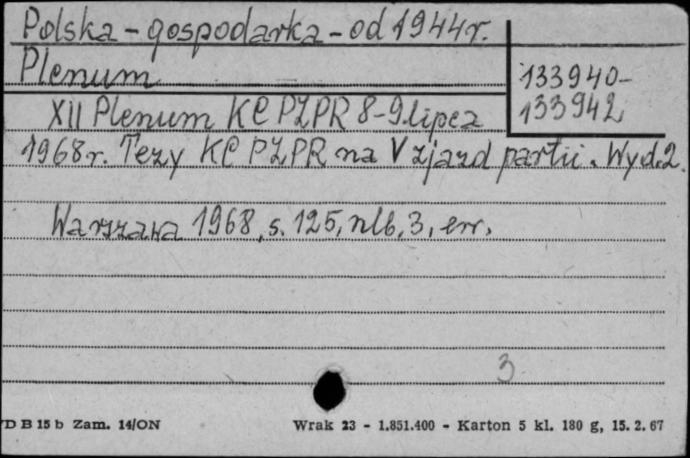 Polska - gospodarka - od 1944r.
Plenum
133940-
133942
XII Plenum KC PZPR 8-9.lipca
1968r. Tezy KC PZPR na V zjazd partii. Wyd.2.
Warszawa 1968, s. 125, nlb, 3, err.
3
D B 15 b Zam. 14/ON
Wrak 23 - 1.851.400 - Karton 5 kl. 180 g, 15. 2. 67